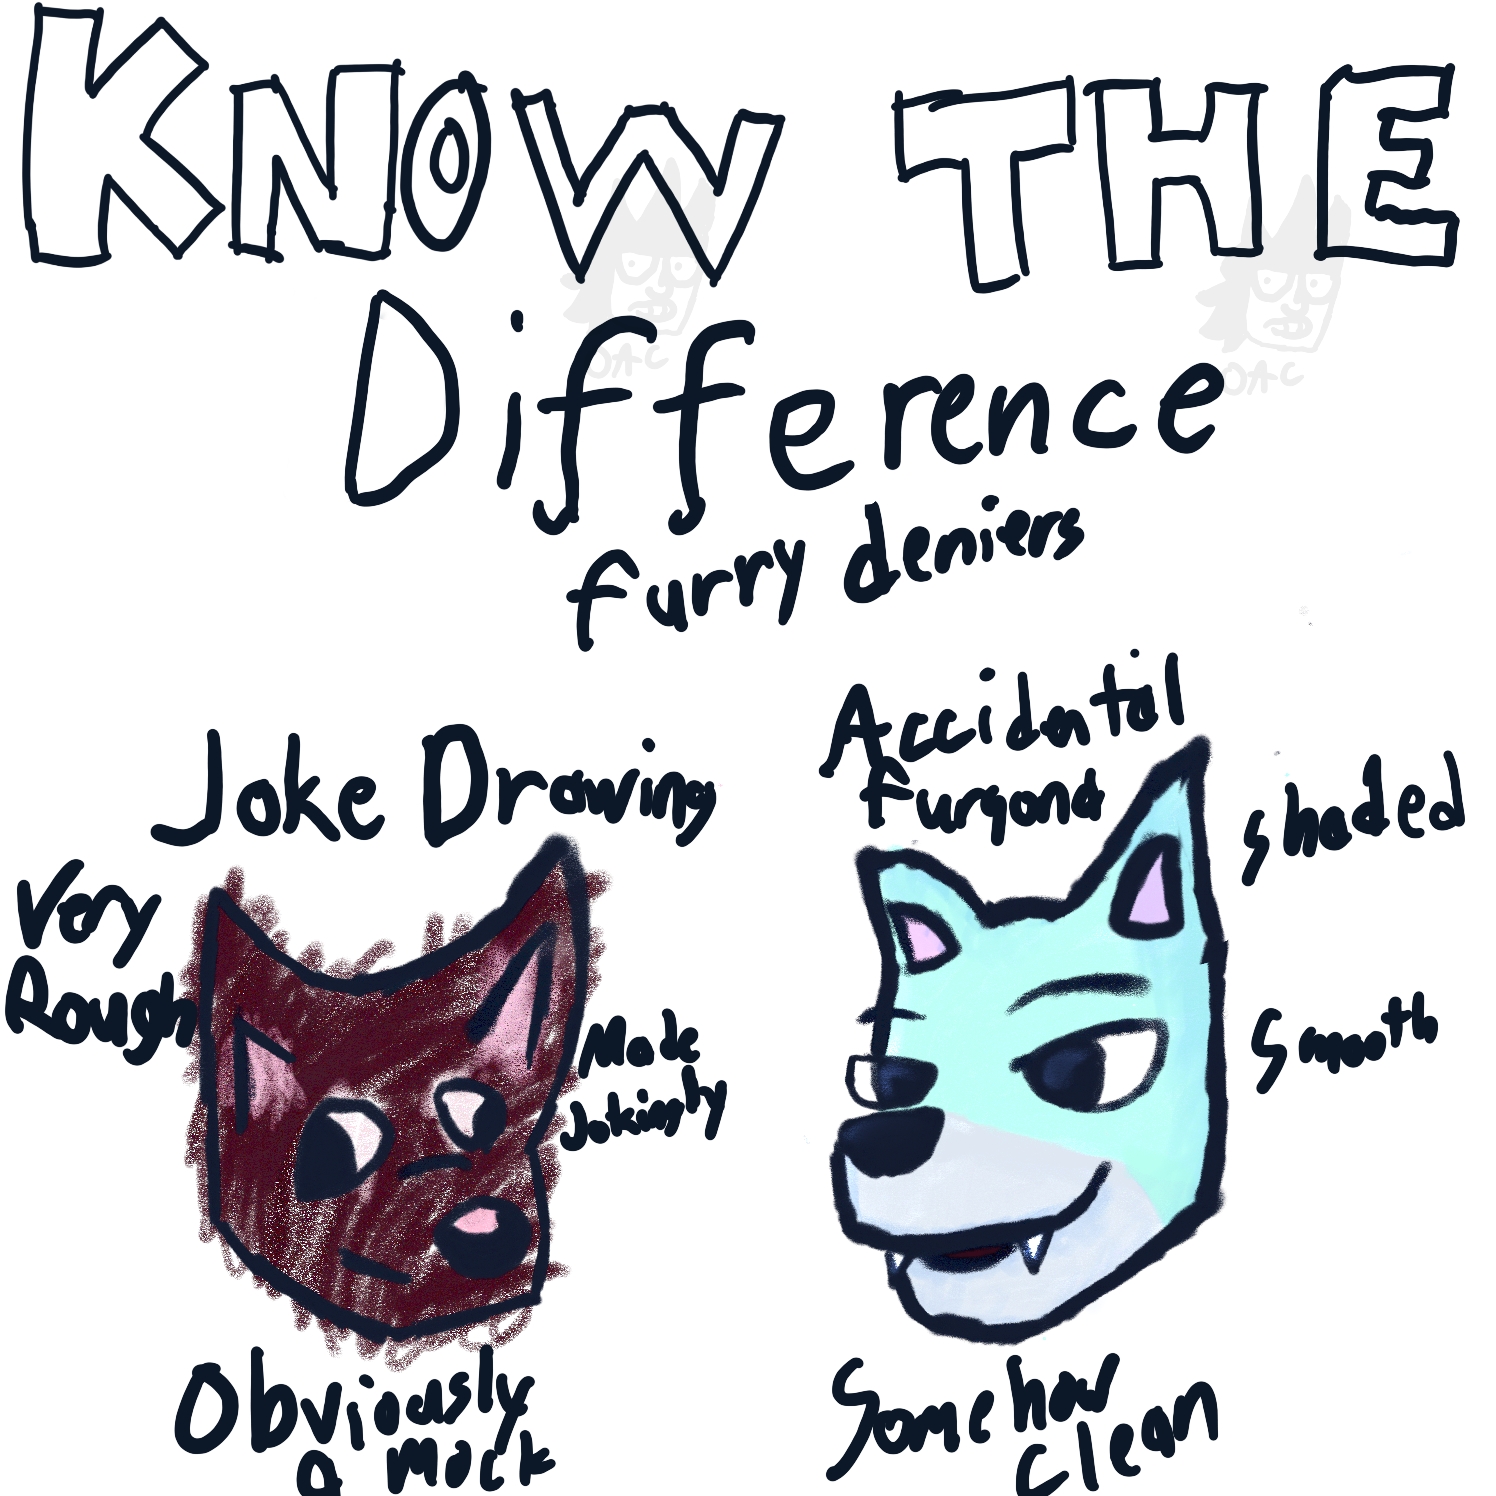 KNOW THE
Difference
furry deniers
Joke Drawing
Very
Rough
Made
Jokingly
Obviously
a mock
Accidental
furgona
shaded
Smooth
Somehow
Clean
OAC
OAC